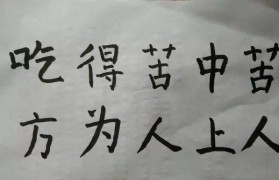 吃得苦中苦
方为人上人